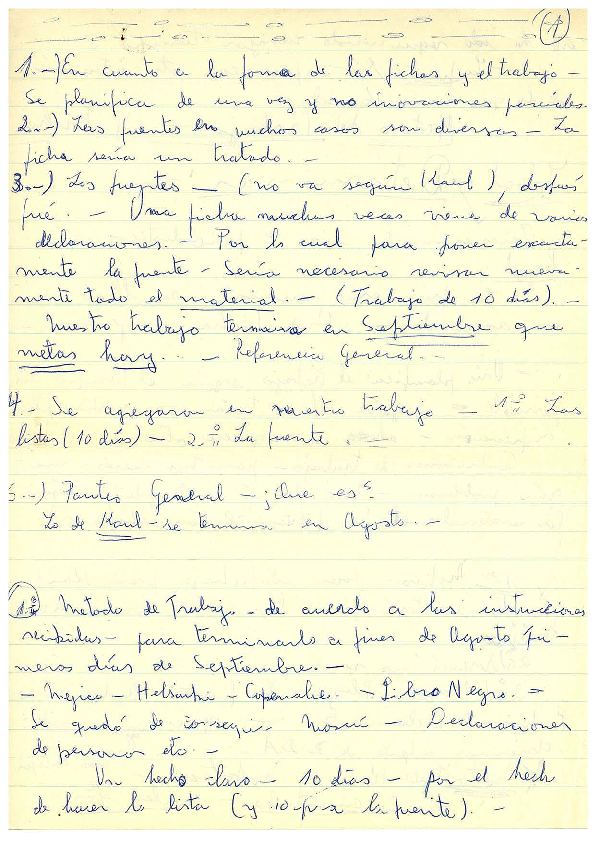 1
1.-) En cuanto a la forma de las fichas y el trabajo -
Se planifica de una vez y no inovaciones parciales.
2.-) Las fuentes en muchos casos son diversas - La
ficha sería un tratado. -
3.-) Las fuentes - (no va según Kaul), después
fué. - Una ficha muchas veces viene de varias
declaraciones. - Por lo cual para poner exacta-
mente la fuente - Sería necesario revisar nueva-
mente todo el material. - (Trabajo de 10 días). -
Nuestro trabajo termina en Septiembre que
metas hay. . - Referencia General. -
4.- Se agregaron en nuestro trabajo - 1º Las
listas (10 días) - 2.º La fuente. -
5.-) Partes General - ¿Que es?
Lo de Kaul - se termina en Agosto. -
1.º Metodo de Trabajo - de acuerdo a las instrucciones
recibidas - para terminarlo a fines de Agosto pri-
meros días de Septiembre. -
- Mejico - Helsinki - Copenahe. - Libro Negro. =
Se quedó de conseguir Moscú - Declaraciones
de personas etc. -
Un hecho claro - 10 días - por el hech
de hacer la lista (y 10 para la fuente). -